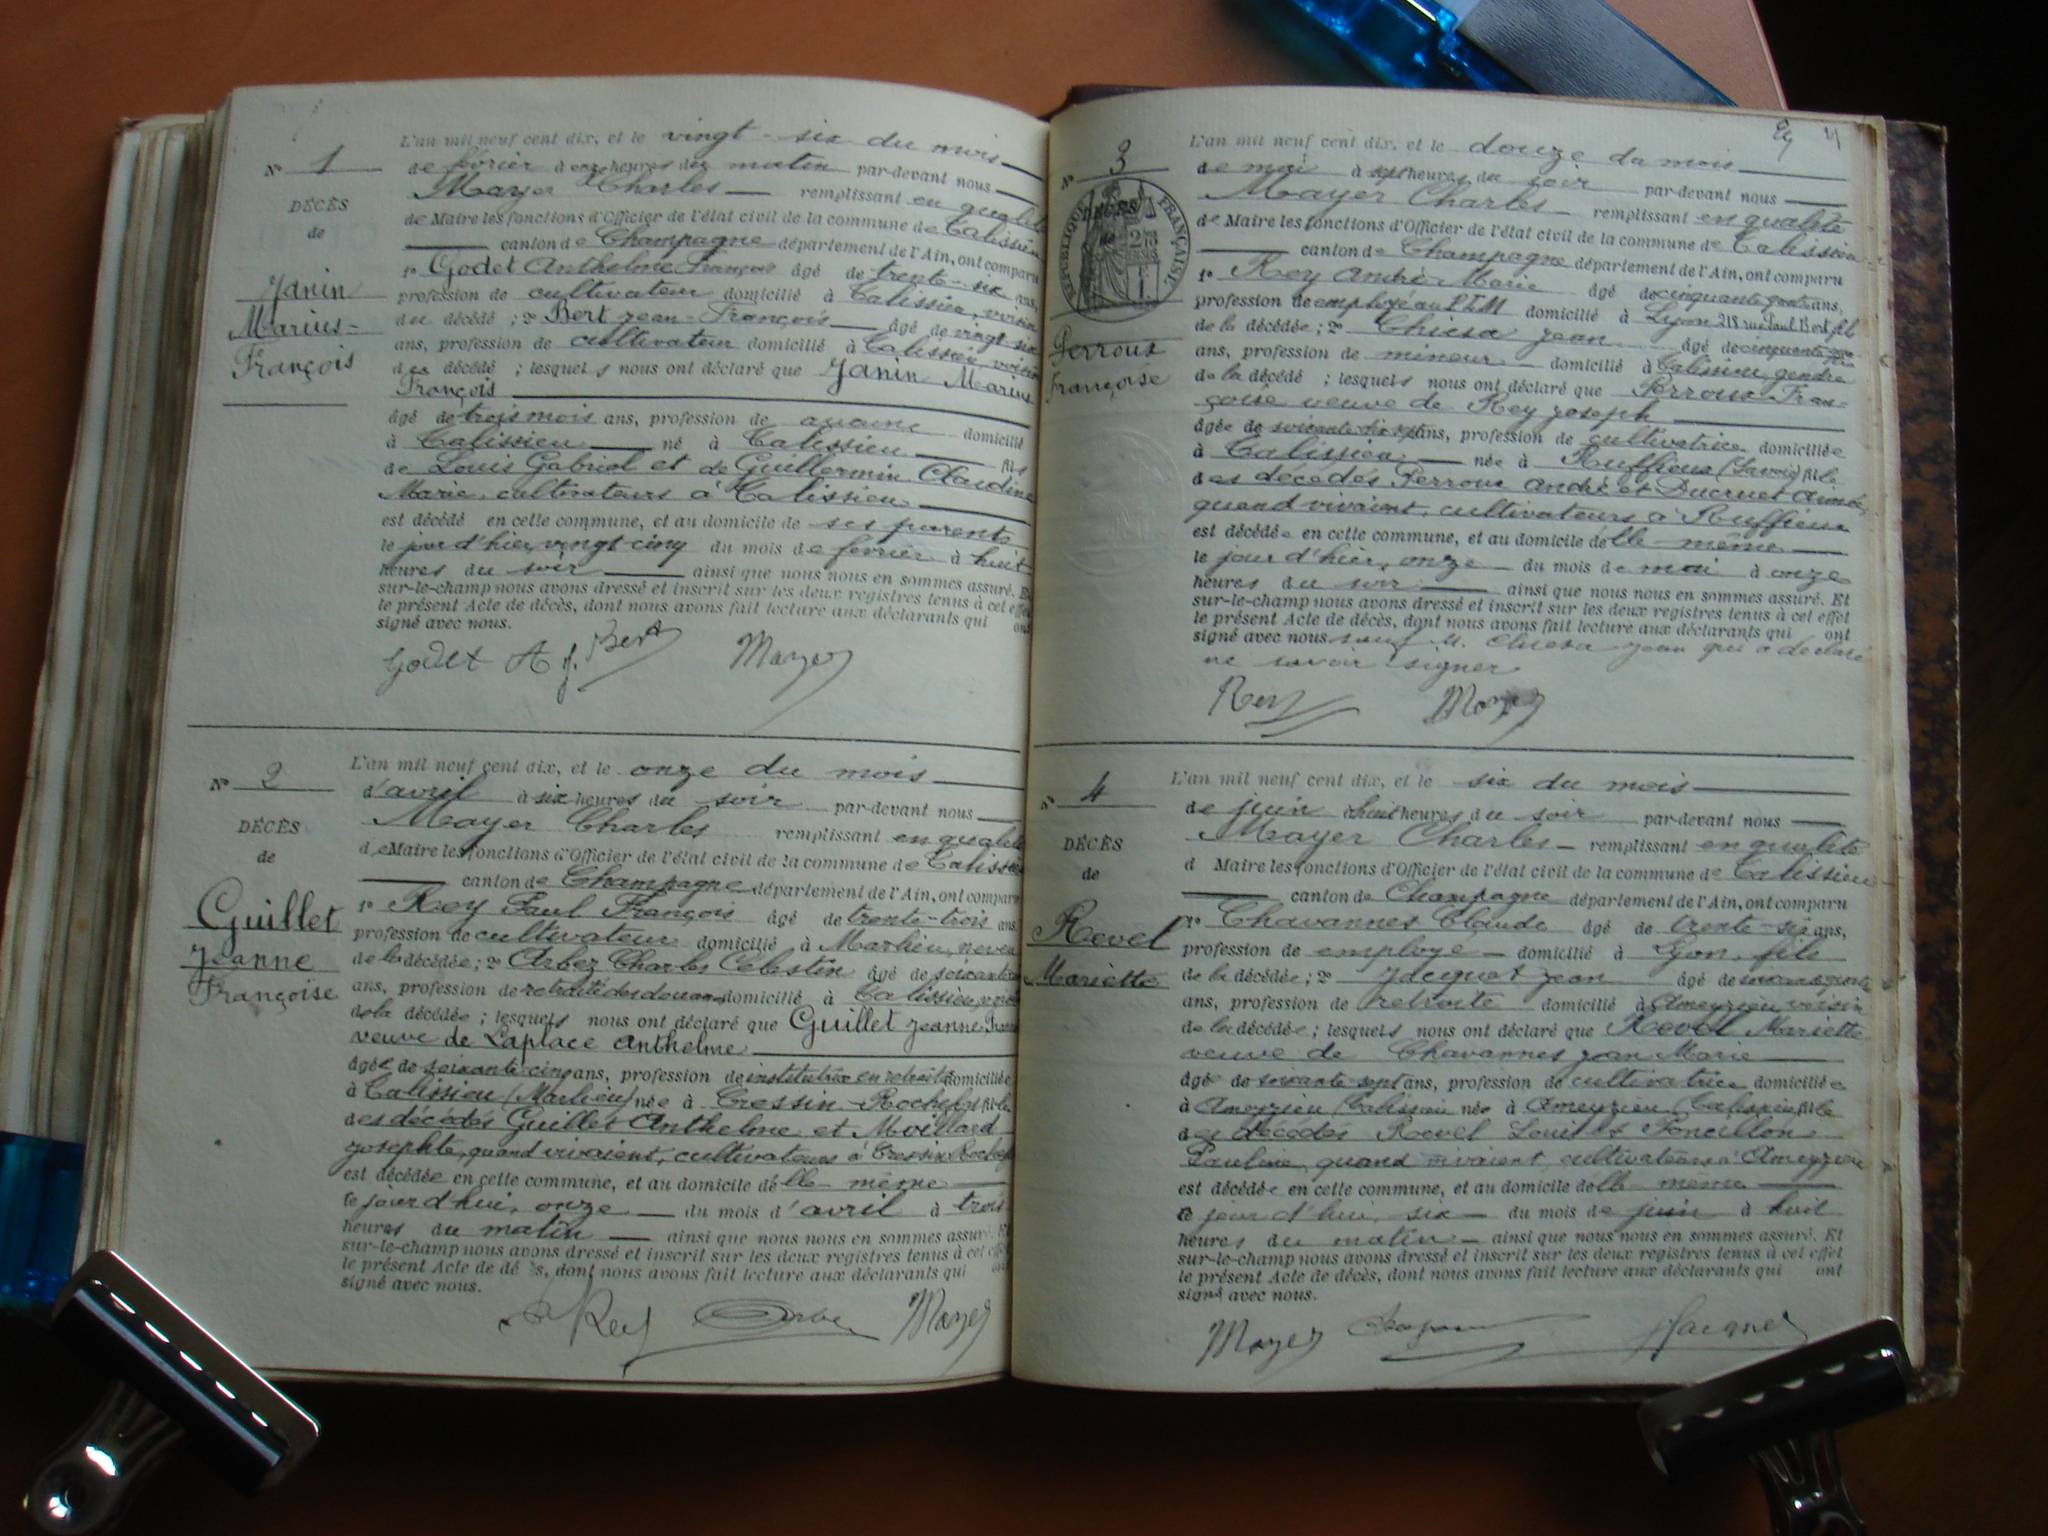 N° 1
DÉCÈS
de
Janin
Marius-
François
L'an mil neuf cent dix, et le vingt-six du mois
de février à onze heures du matin par-devant nous
Mayer Charles remplissant en qualité
de Maire les fonctions d'Officier de l'état civil de la commune de Talissieu
canton de Champagne département de l'Ain, ont comparu
1° Godet Anthelme François âgé de trente-six ans,
profession de cultivateur domicilié à Talissieu, voisin
du décédé ; 2° Bert Jean-François âgé de vingt six
ans, profession de cultivateur domicilié à Talissieu, voisin
du décédé ; lesquels nous ont déclaré que Janin Marius
François
âgé de trois mois ans, profession de aucune domicilié
à Talissieu né à Talissieu fils
de Louis Gabriel et de Guillermin Claudine
Marie, cultivateurs à Talissieu
est décédé en cette commune, et au domicile de ses parents
le jour d'hier, vingt-cinq du mois de février à huit
heures du soir ainsi que nous nous en sommes assuré. Et
sur-le-champ nous avons dressé et inscrit sur les deux registres tenus à cet effet
le présent Acte de décès, dont nous avons fait lecture aux déclarants qui ont
signé avec nous.
Godet A f. Bert Mayer
N° 2
DÉCÈS
de
Guillet
Jeanne
Françoise
L'an mil neuf cent dix, et le onze du mois
d'avril à six heures du soir par-devant nous
Mayer Charles remplissant en qualité
de Maire les fonctions d'Officier de l'état civil de la commune de Talissieu
canton de Champagne département de l'Ain, ont comparu
1° Rey Paul François âgé de trente-trois ans,
profession de cultivateur domicilié à Marlieu, neveu
de la décédée ; 2° Arbez Charles Célestin âgé de soixante
ans, profession de retraité des douanes domicilié à Talissieu,
de la décédée ; lesquels nous ont déclaré que Guillet Jeanne
veuve de Laplace Anthelme
âgée de soixante cinq ans, profession de institutrice en retraite domiciliée
à Talissieu (Marlieu) née à Cressin-Rochefort fille
des décédés Guillet Anthelme et Moillard
Josephte, quand vivaient, cultivateurs à Cressin Rochefort
est décédée en cette commune, et au domicile d'elle même
le jour d'hui, onze du mois d'avril à trois
heures du matin ainsi que nous nous en sommes assuré. Et
sur-le-champ nous avons dressé et inscrit sur les deux registres tenus à cet effet
le présent Acte de décès, dont nous avons fait lecture aux déclarants qui ont
signé avec nous.
Rey Mayer
4
N° 3
RÉPUBLIQUE FRANÇAISE
DÉCÈS
de
Perroux
Françoise
L'an mil neuf cent dix, et le douze du mois
de mai à sept heures du soir par-devant nous
Mayer Charles remplissant en qualité
de Maire les fonctions d'Officier de l'état civil de la commune de Talissieu
canton de Champagne département de l'Ain, ont comparu
1° Rey André Marie âgé de cinquante quatre ans,
profession de employé au P.L.M domicilié à Lyon 218 rue Paul Bert, fils
de la décédée ; 2° Chiesa Jean âgé de cinquante
ans, profession de mineur domicilié à Talissieu, gendre
de la décédé ; lesquels nous ont déclaré que Perroux Fran-
çoise veuve de Rey Joseph
âgée de soixante dix sept ans, profession de cultivatrice domiciliée
à Talissieu née à Ruffieux (Savoie) fille
des décédés Perroux André et Ducruet
quand vivaient, cultivateurs à Ruffieux
est décédée en cette commune, et au domicile d'elle même
le jour d'hier, onze du mois de mai à onze
heures du soir ainsi que nous nous en sommes assuré. Et
sur-le-champ nous avons dressé et inscrit sur les deux registres tenus à cet effet
le présent Acte de décès, dont nous avons fait lecture aux déclarants qui ont
signé avec nous sauf M. Chiesa Jean qui a déclaré
ne savoir signer
Rey Mayer
N° 4
DÉCÈS
de
Revel
Mariette
L'an mil neuf cent dix, et le six du mois
de juin à huit heures du soir par-devant nous
Mayer Charles remplissant en qualité
d Maire les fonctions d'Officier de l'état civil de la commune de Talissieu
canton de Champagne département de l'Ain, ont comparu
1° Chavannes Claude âgé de trente-six ans,
profession de employé domicilié à Lyon, fils
de la décédée ; 2° Jacquet Jean âgé de
ans, profession de retraité domicilié à Ameyzieu voisin
de la décédée ; lesquels nous ont déclaré que Revel Mariette
veuve de Chavannes Jean Marie
âgée de soixante sept ans, profession de cultivatrice domiciliée
à Ameyzieu (Talissieu) née à Ameyzieu (Talissieu) fille
des décédés Revel Louis et
Pauline, quand vivaient cultivateurs à Ameyzieu
est décédée en cette commune, et au domicile d'elle même
le jour d'hui, six du mois de juin à huit
heures du matin ainsi que nous nous en sommes assuré. Et
sur-le-champ nous avons dressé et inscrit sur les deux registres tenus à cet effet
le présent Acte de décès, dont nous avons fait lecture aux déclarants qui ont
signé avec nous.
Mayer Jacquet